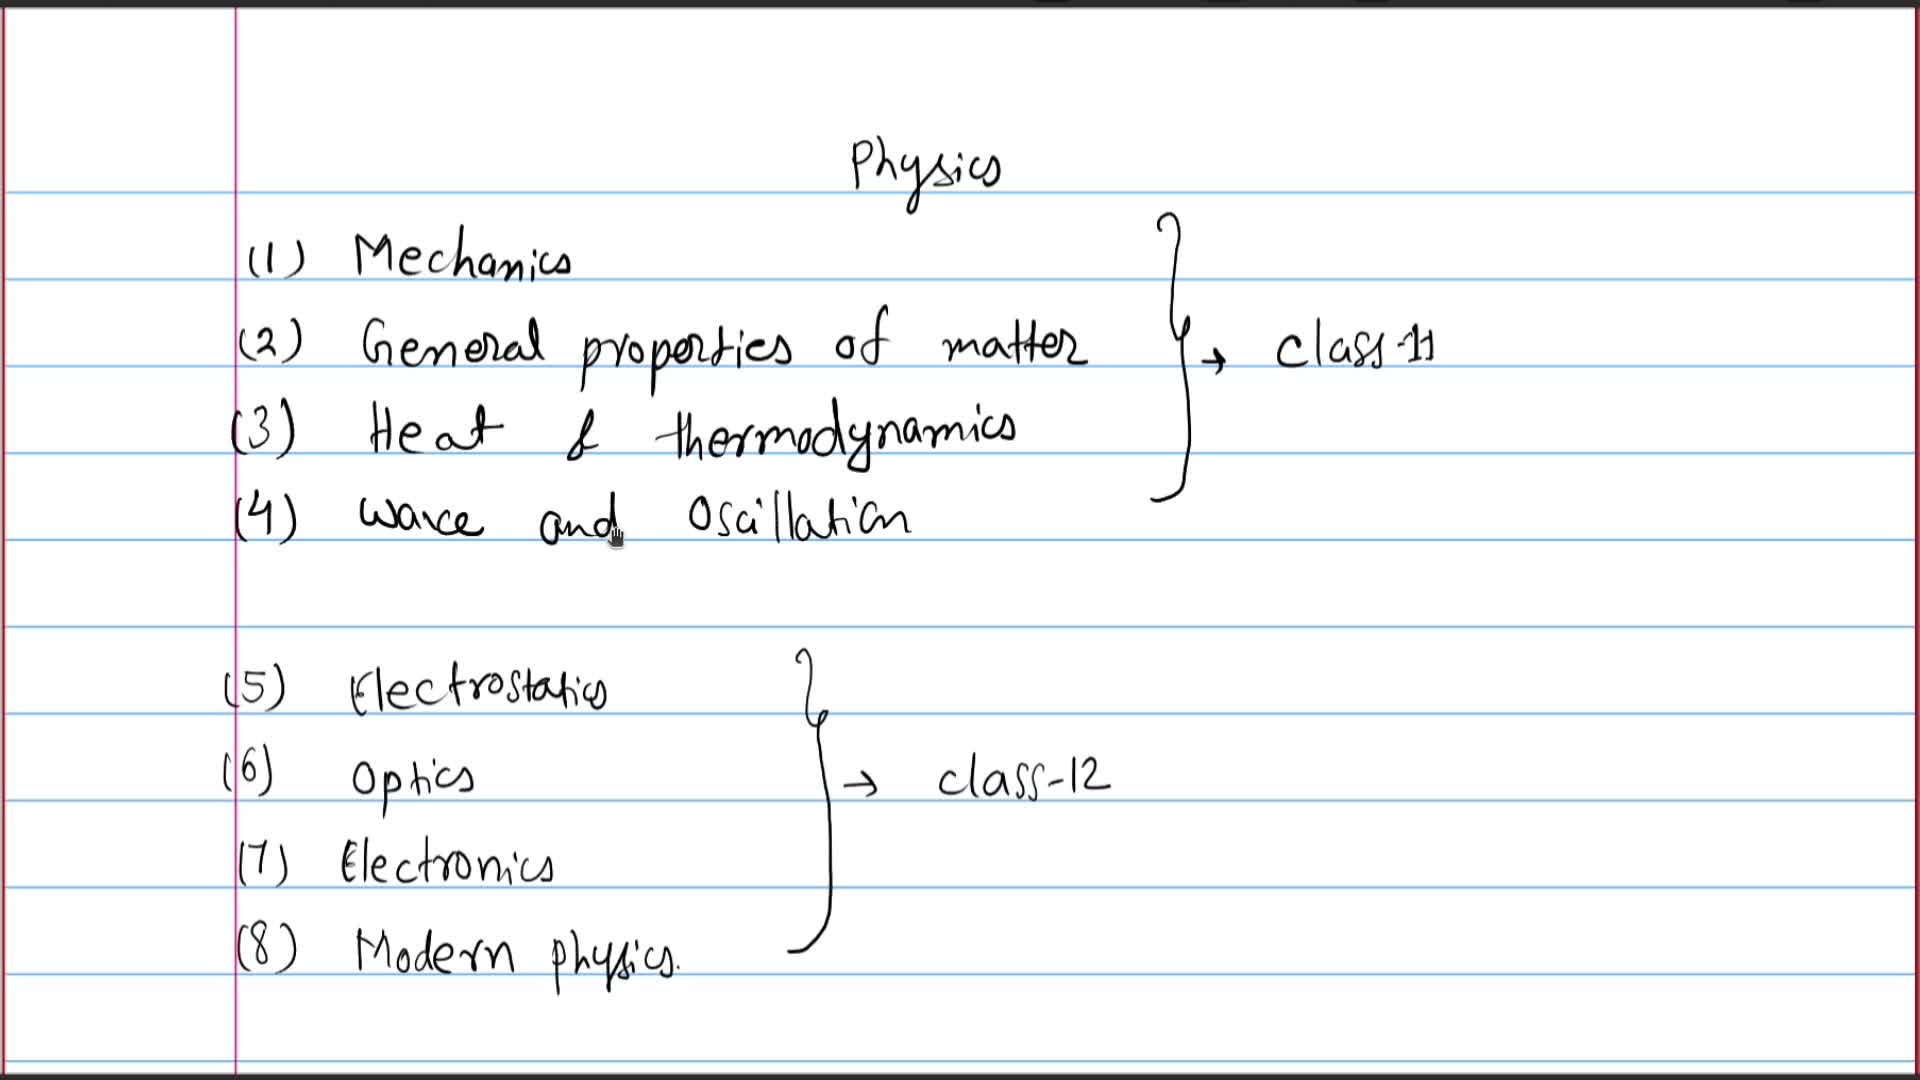 Physics
(1) Mechanics
(2) General properties of matter
(3) Heat & thermodynamics
→ class-11
(4) Wave and Oscillation
(5) Electrostatics
(6) Optics
→ class-12
(7) Electronics
(8) Modern physics.